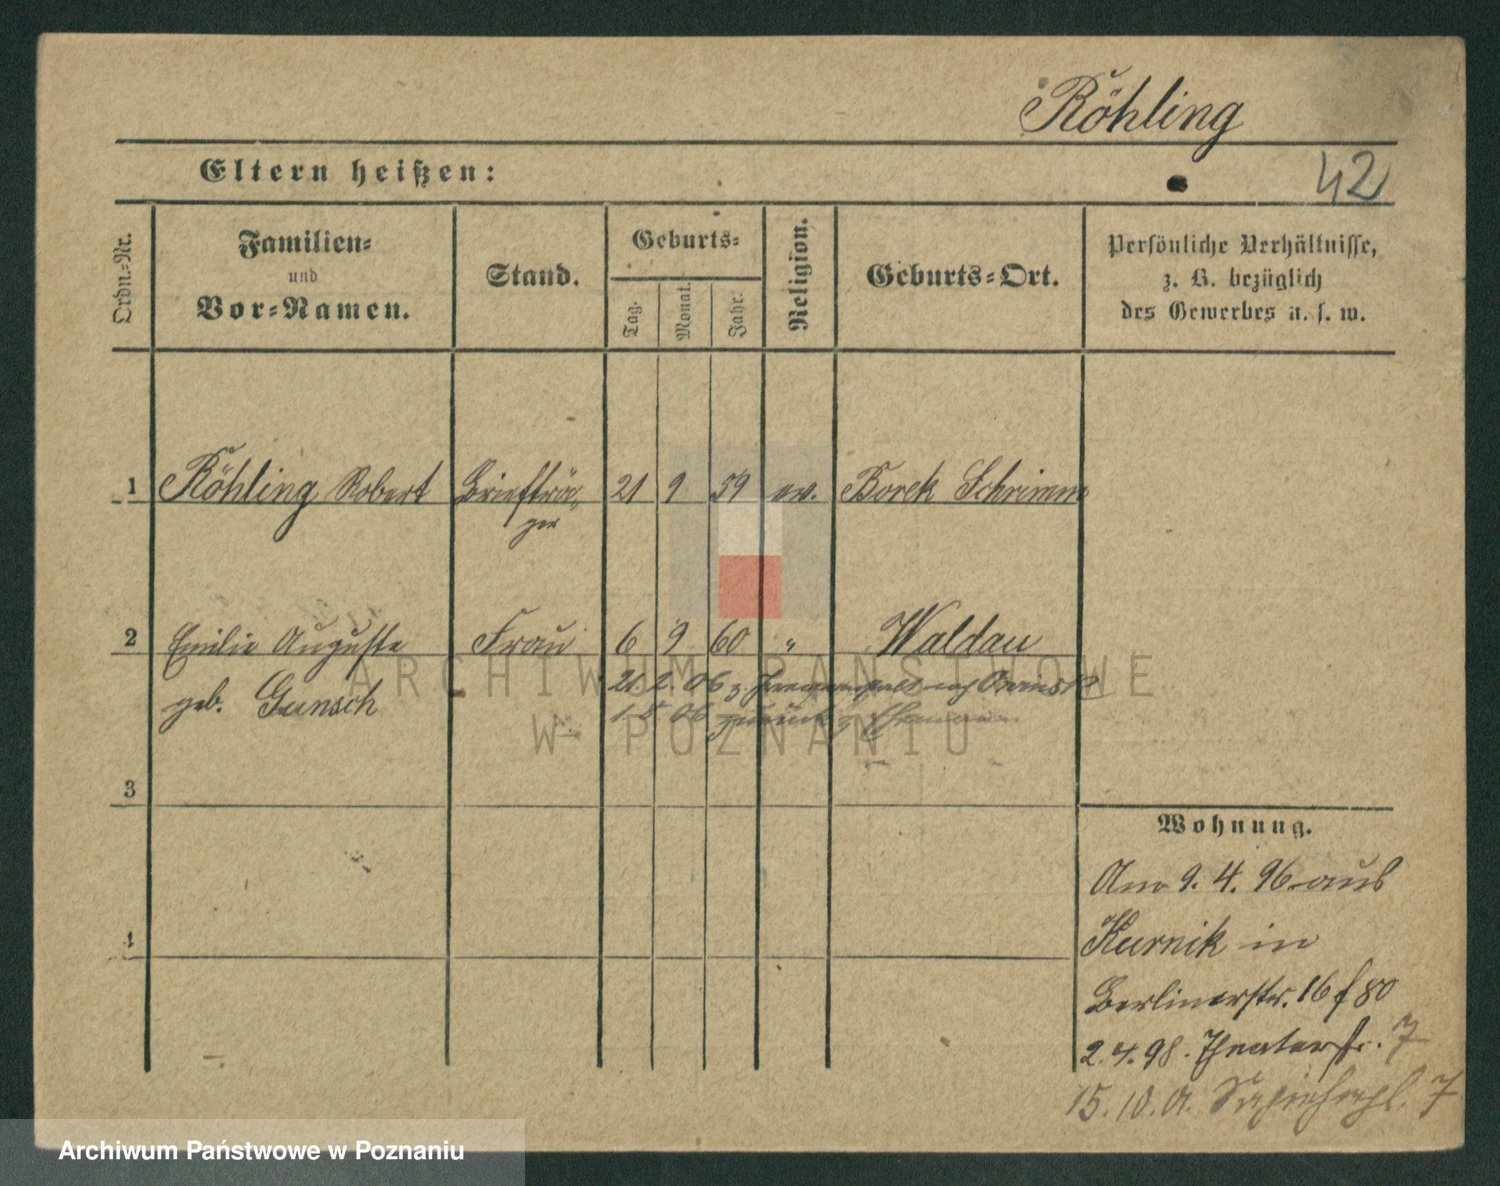 Röhling
Eltern heißen:
42
Ordn.-Nr.
Familien-
und
Vor-Namen.
Stand.
Geburts-
Tag.
Monat.
Jahr.
Religion.
Geburts-Ort.
Persönliche Verhältnisse,
z. B. bezüglich
des Gewerbes u. s. w.
1 Röhling Robert Briefträ- 21 9 59 ev. Borek Schrimm
ger
2 Emilie Auguste Frau 6 9 60 " Waldau
geb. Gunsch
21. 2. 06 z.
1 5 06 zurück
3
4
Wohnung.
Am 9. 4. 96 aus
Kurnik in
Berlinerstr. 16 f 80
2. 4. 98. Theaterstr. 7
15. 10. 01. Sapiehapl. 7
ARCHIWUM PAŃSTWOWE
W POZNANIU
Archiwum Państwowe w Poznaniu